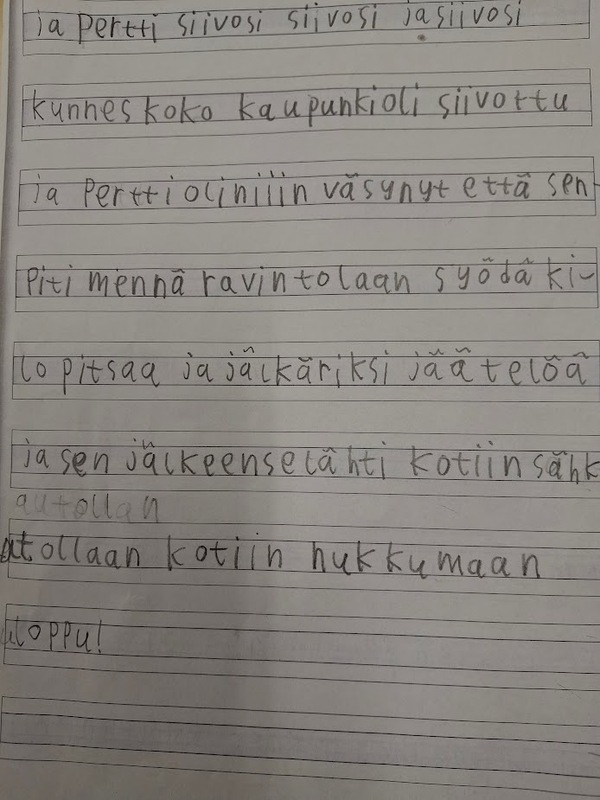 ja pertti siivosi siivosi ja siivosi
kunnes koko kaupunki oli siivottu
ja Pertti oli niiin väsynyt että sen
piti mennä ravintolaan syödä ki-
lo pitsaa ja jälkäriksi jäätelöä
ja sen jälkeen se lähti kotiin sähk
autollan
atollaan kotiin nukkumaan
loppu!